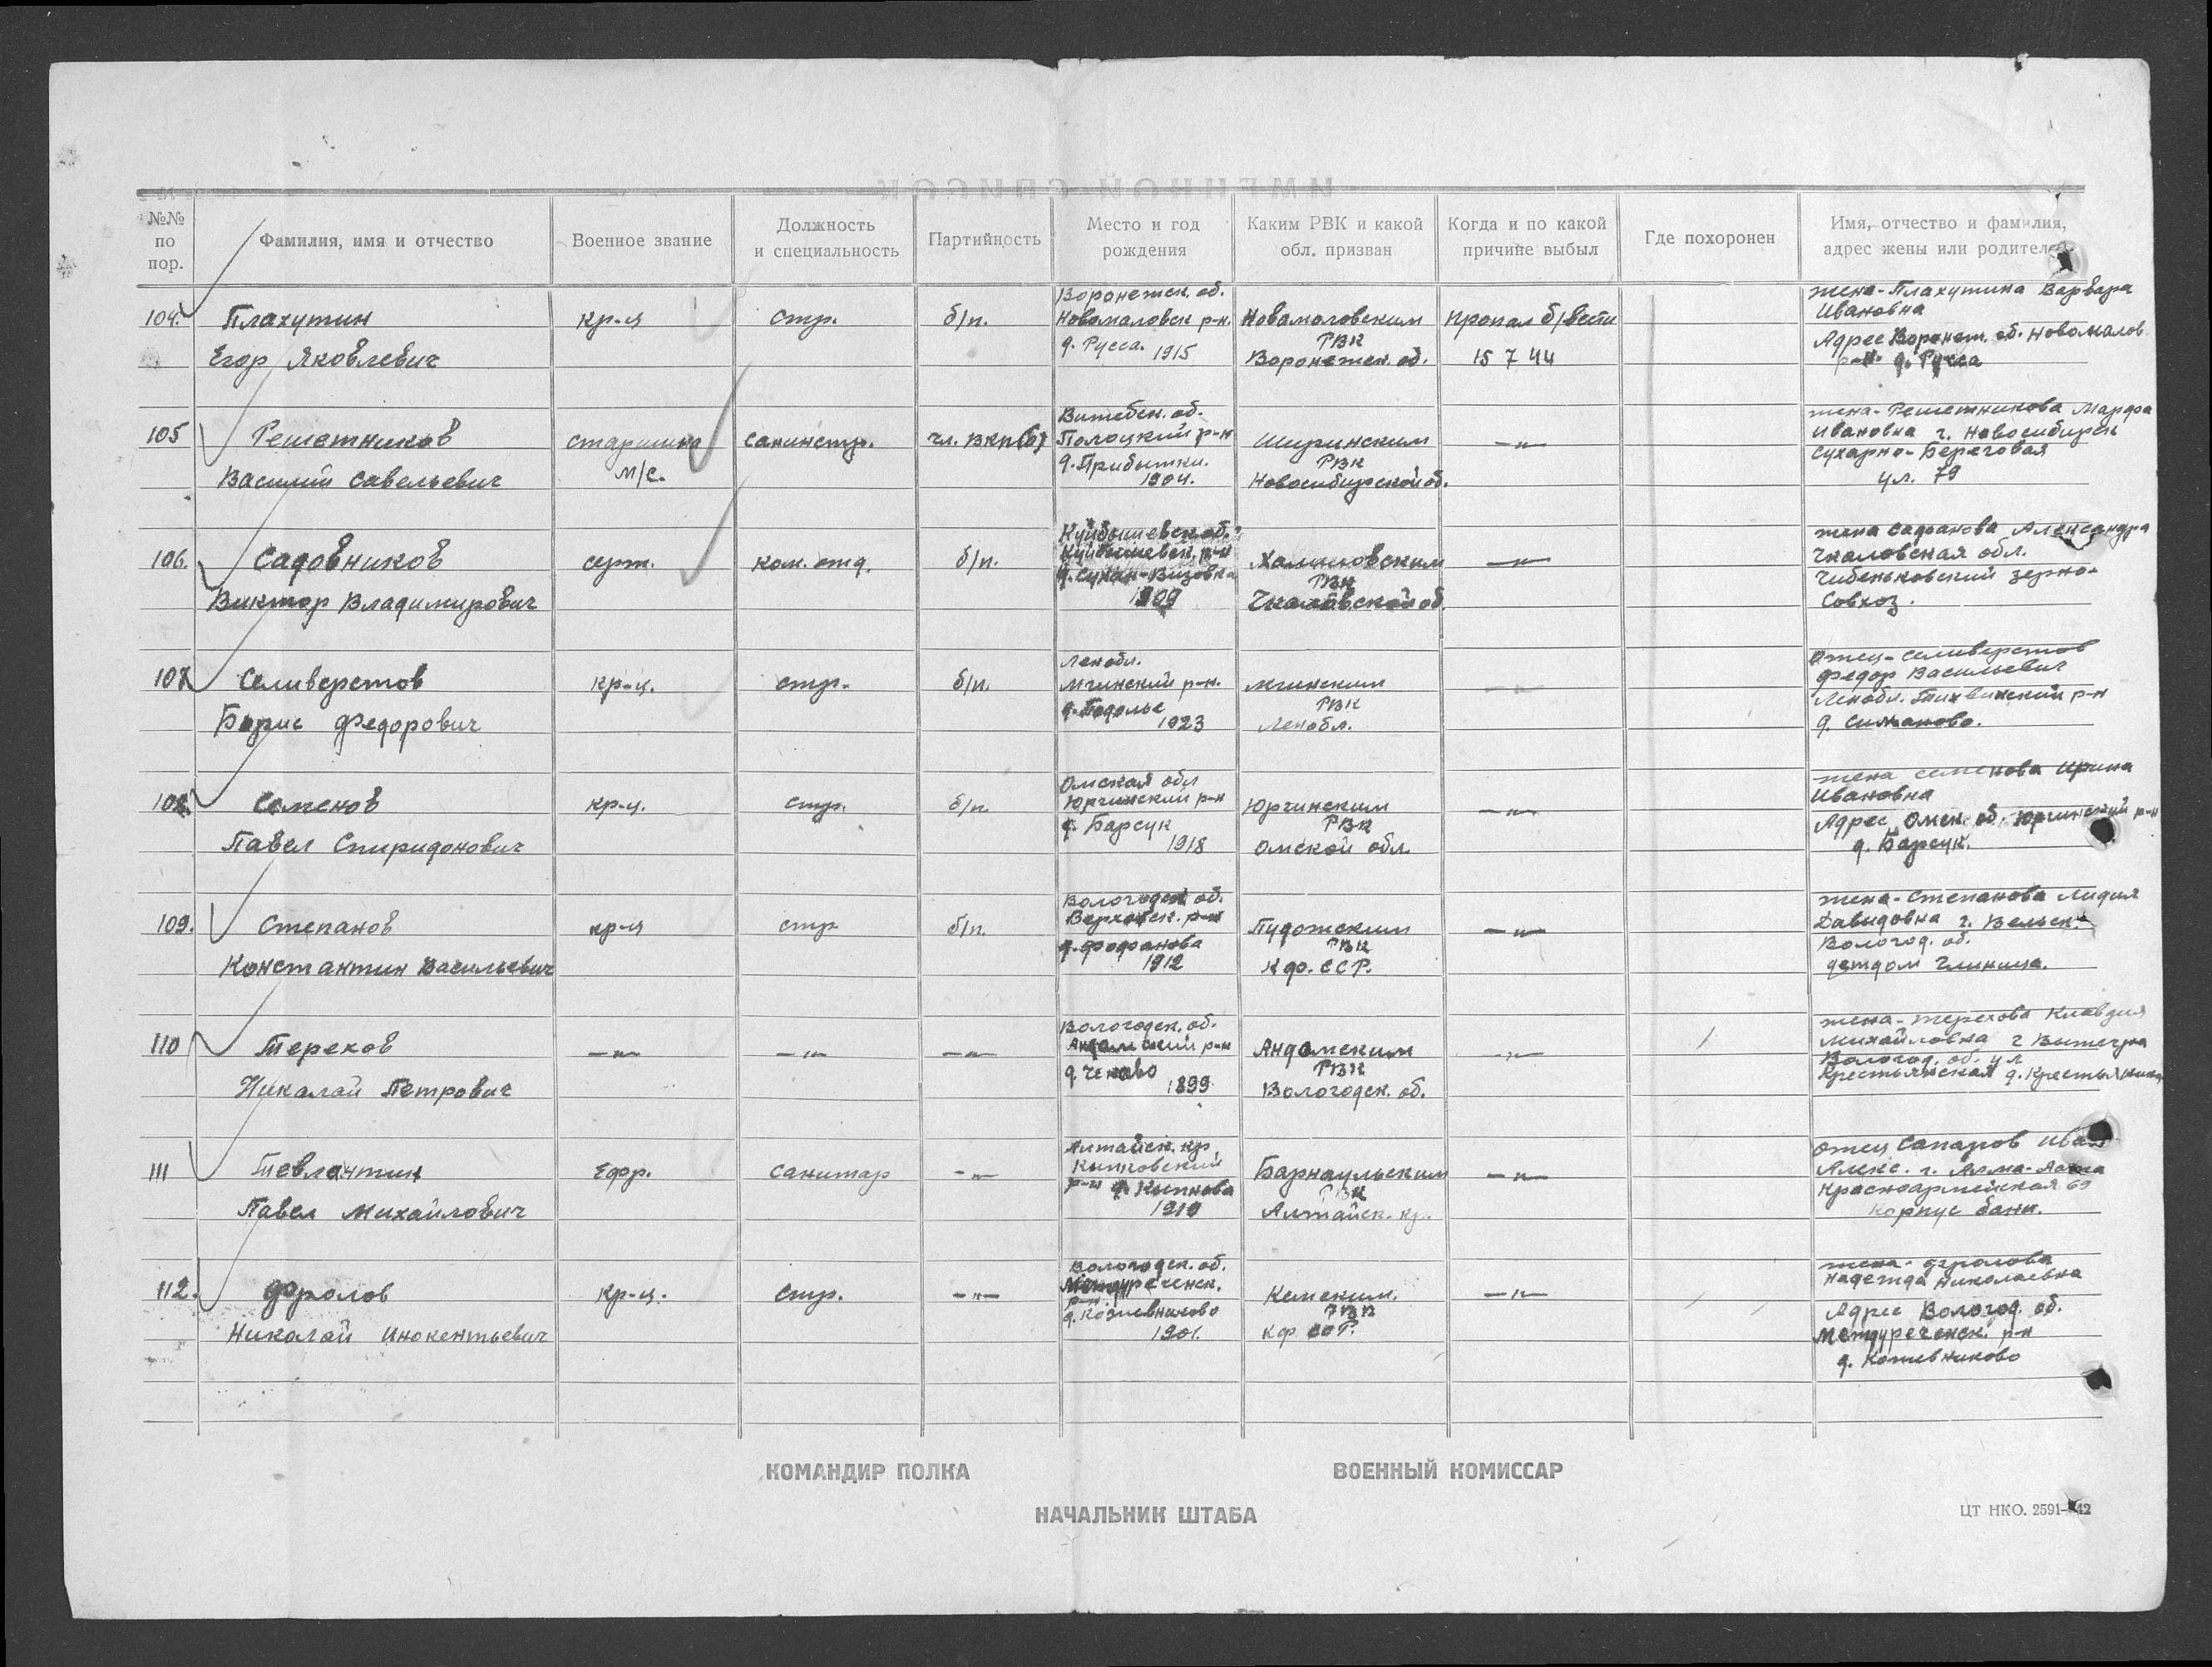 №№ по пор.
Фамилия, имя и отчество
Военное звание
Должность и специальность
Партийность
Место и год рождения
Каким РВК и какой обл. призван
Когда и по какой причине выбыл
Где похоронен
Имя, отчество и фамилия, адрес жены или родителей
104. Плахутин Егор Яковлевич
кр-ц
стр.
б/п.
Воронежск. об.
Новомаловск р-н.
д. Русса. 1915
Новомаловским
РВК
Воронежск. об.
пропал б/вести
15 7 44
жена-Плахутина Варвара
Ивановна
Адрес Воронеж. об. Новомалов.
р-н. д. Русса
105 Решетников Василий Савельевич
старшина
м/с.
санинстр.
чл. ВКП(б)
Витебск. об.
Полоцкий р-н
д. Прибытки.
1904.
РВК
Новосибирской об.
—"—
жена-Решетникова Марфа
Ивановна г. Новосибирск
Сухарно-Береговая
ул. 79
106. Садовников Виктор Владимирович
серж.
ком. отд.
б/п.
Куйбышевск. об.
Куйбышевск. р-н
1909
Халиловским
РВК
Чкаловской об.
—"—
жена Александра
Чкаловская обл.
зерно-
совхоз.
107 Селиверстов Борис Федорович
кр-ц.
стр.
б/п.
Ленобл.
Мгинский р-н.
д. Подолье
1923
Мгинским
РВК
Ленобл.
—"—
Отец-Селиверстов
Федор Васильевич
Ленобл. Тихвинский р-н
д. Симаново.
108. Семенов Павел Спиридонович
кр-ц.
стр.
б/п.
Омская обл
Юргинский р-н
д. Барсук
1918
Юргинским
РВК
Омской обл.
—"—
жена Семенова Ирина
Ивановна
Адрес Омск. об. Юргинский р-н
д. Барсук.
109. Степанов Константин Васильевич
кр-ц
стр
б/п.
Вологодск. об.
Верховск. р-н
д. Фофанова
1912
Пудожским
РВК
Кф. ССР.
—"—
жена-Степанова Лидия
Давидовна г. Вельск.
Вологод. об.
детдом
110 Терехов Николай Петрович
—"—
—"—
—"—
Вологодск. об.
Андомский р-н
1899
Андомским
РВК
Вологодск. об.
—"—
жена-Терехова Клавдия
Михайловна г Вытегра
Вологод. об. ул
Крестьянская
111 Павел Михайлович
Ефр.
санитар
—"—
Алтайск. кр.
р-н
Барнаульским
РВК
Алтайск. кр.
—"—
отец Сапаров Иван
Алекс. г. Алма-Ата
Красноармейская
корпус
112. Фролов Николай Инокентьевич
кр-ц.
стр.
—"—
Вологодск. об.
Междуреченск.
р-н.
д. Кожевниково
1901.
Кемским.
РВК
Кф ССР.
—"—
жена-Фролова
Надежда Николаевна
Адрес Вологод. об.
Междуреченск. р-н
д. Кожевниково
КОМАНДИР ПОЛКА
ВОЕННЫЙ КОМИССАР
НАЧАЛЬНИК ШТАБА
ЦТ НКО. 2591-42